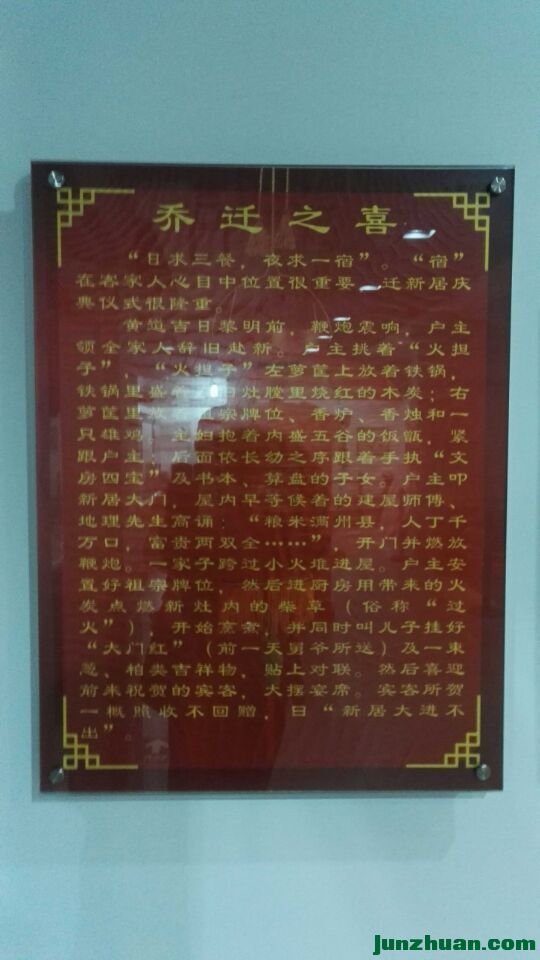 乔迁之喜
“日求三餐，夜求一宿”。“宿”
在客家人心目中位置很重要 迁新居庆
典仪式很隆重。
黄道吉日黎明前，鞭炮震响，户主
领全家人辞旧赴新。户主挑着“火担
子”，“火担子”左箩筐上放着铁锅，
铁锅里盛 旧灶膛里烧红的木炭；右
箩筐里放 祖宗牌位、香炉、香烛和一
只雄鸡 主妇抱着内盛五谷的饭甑，紧
跟户主 后面依长幼之序跟着手执“文
房四宝”及书本、算盘的子女。户主叩
新居大门，屋内早等候着的建屋师傅、
地理先生高诵：“粮米满州县，人丁千
万口，富贵两双全……”，开门并燃放
鞭炮。一家子跨过小火堆进屋。户主安
置好祖宗牌位，然后进厨房用带来的火
炭点燃新灶内的柴草（俗称“过
火”） 开始烹煮，并同时叫儿子挂好
“大门红”（前一天舅爷所送）及一束
葱、柏类吉祥物，贴上对联。然后喜迎
前来祝贺的宾客，大摆宴席。宾客所贺
一概照收不回赠，曰“新居大进不
出”。
junzhuan.com